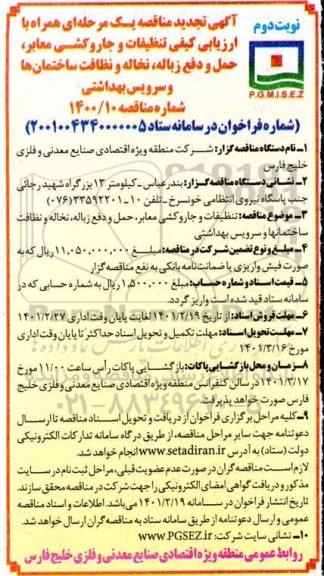 نوبت دوم
آگهی تجدید مناقصه یک مرحله‌ای همراه با
ارزیابی کیفی تنظیفات و جاروکشی معابر،
حمل و دفع زباله، نخاله و نظافت ساختمان‌ها
و سرویس بهداشتی
P.G.M.I.S.E.Z
شماره مناقصه ۱۴۰۰/۱۰
(شماره فراخوان در سامانه ستاد ۲۰۰۱۰۰۴۳۴۰۰۰۰۰۰۵)
۱ـ نام دستگاه مناقصه گزار: شرکت منطقه ویژه اقتصادی صنایع معدنی و فلزی
خلیج فارس
۲ـ نشانی دستگاه مناقصه گزار: بندرعباس ـ کیلومتر ۱۳ بزرگراه شهید رجائی
جنب پاسگاه نیروی انتظامی خونسرخ ـ تلفن ۱۰ـ۳۳۵۹۲۲۰۱ (۰۷۶)
۳ـ موضوع مناقصه: تنظیفات و جاروکشی معابر، حمل و دفع زباله، نخاله و نظافت
ساختمانها و سرویس بهداشتی
۴ـ مبلغ و نوع تضمین شرکت در مناقصه: مبلغ ۱۱,۰۵۰,۰۰۰,۰۰۰ ریال که به
صورت فیش واریزی یا ضمانتنامه بانکی به نفع مناقصه گزار
۵ـ قیمت اسناد و شماره حساب: مبلغ ۱,۵۰۰,۰۰۰ ریال به شماره حسابی که در
سامانه ستاد قید شده است واریز گردد.
۶ـ مهلت فروش اسناد: از تاریخ ۱۴۰۱/۲/۱۹ لغایت پایان وقت اداری ۱۴۰۱/۲/۲۷
۷ـ مهلت تحویل اسناد: مهلت تکمیل و تحویل اسناد حداکثر تا پایان وقت اداری
مورخ ۱۴۰۱/۳/۱۶
۸ـ زمان و محل بازگشایی پاکات: بازگشایی پاکات رأس ساعت ۱۱/۰۰ مورخ
۱۴۰۱/۳/۱۷ در سالن کنفرانس منطقه ویژه اقتصادی صنایع معدنی و فلزی خلیج
فارس صورت خواهد پذیرفت.
۹ـ کلیه مراحل برگزاری فراخوان از دریافت و تحویل اسناد مناقصه تا ارسال
دعوتنامه جهت سایر مراحل مناقصه، از طریق درگاه سامانه تدارکات الکترونیکی
دولت (ستاد) به آدرس www.setadiran.ir انجام خواهد شد.
لازم است مناقصه گران در صورت عدم عضویت قبلی، مراحل ثبت نام در سایت
مذکور و دریافت گواهی امضای الکترونیکی را جهت شرکت در مناقصه محقق سازند.
تاریخ انتشار فراخوان در سامانه ۱۴۰۱/۲/۱۹ می‌باشد. اطلاعات و اسناد مناقصه
عمومی و ارسال دعوتنامه از طریق سامانه ستاد به مناقصه گران ارسال خواهد شد.
۱۰ـ نشانی سایت شرکت: www.PGSEZ.ir
روابط عمومی منطقه ویژه اقتصادی صنایع معدنی و فلزی خلیج فارس